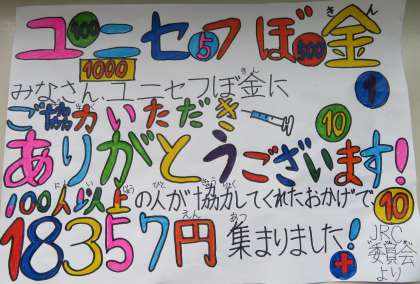 ユニセフぼ金
きん
100
5
500
1000
みなさん、ユニセフぼ金に
きん
1
ご協力いただき
きょうりょく
10
ありがとうございます!
100人以上の人が協力してくれたおかげで、
にん いじょう ひと きょうりょく
10
18357円集まりました!
えん あつ
JRC
委員会
いいんかい
より